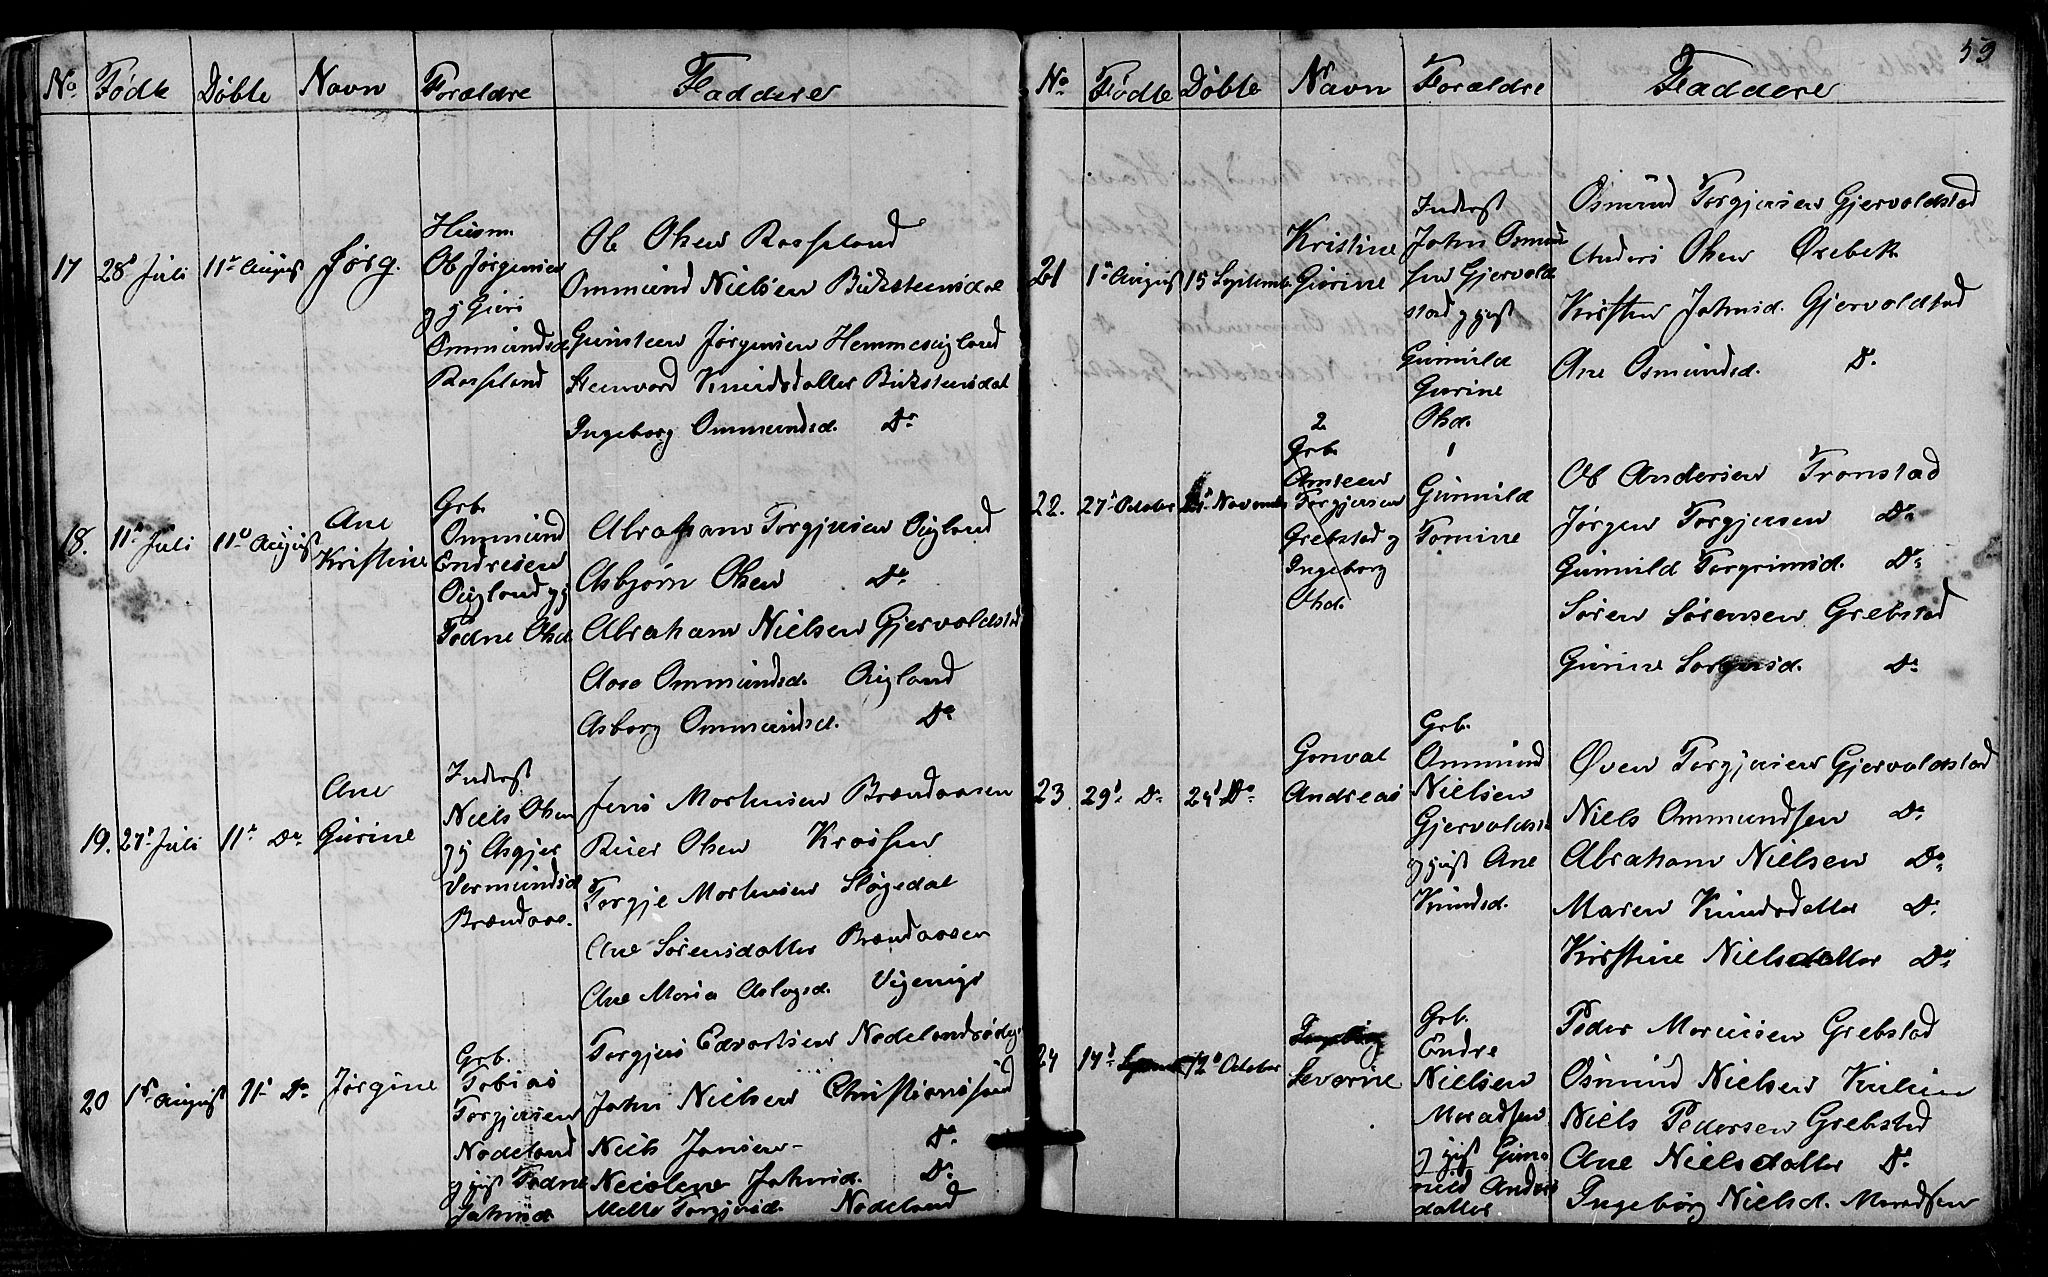 No. Fødte Døbte Navn Forældre Faddere
17 28de Juli 11te August Jørg.
Huusm.
Ole Jørgensen
og g Giøri
Ommundsd.
Rosseland
Ole Olsen Rosseland
Ommund Nielsen Birksteensdal
Gunsteen Jørgensen Hommesugland
Steenvord Knudsdatter Birksteensdal
Ingeborg Ommundsd. Do
18. 11te Juli 11te August
Ane
Kristine
Grb.
Ommund
Endresen
Øigland og g
Todne Olsd
Abraham Torgjusen Øigland
Asbjørn Olsen Do
Abraham Nielsen Gjervoldstd
Aase Ommundsd. Øigland
Asborg Ommundsd. Do
19. 27de Juli 11te Do
Ane
Gurine
Inderst
Niels Olsen
og g Asgjer
Vermundsd
Brændaas.
Jens Mortensen Brændaasen
Reier Olsen
Torgje Mortensen Støgedal
Ane Sørensdatter Brændaasen
Ane Maria Aslagsd.
20 1ste August 11te Do Jørgine
Grb.
Tobias
Torgjusen
Nodeland
og gift Todne
Johnsd.
Torgjus Edvartsen Nodelandsødeg
John Nielsen Christianssand
Niels Jansen Do
Nicoline Johnsd. Do
Mette Torgjusd. Nodeland
59
No. Fødte Døbte Navn Forældre Faddere
21 1ste August 15 Septemb.
Kristine
Gurine
Inderst
John Osmun
sen Gjervold
stad og gift
Gunnild
Gurine
Olsd.
Osmund Torgjusen Gjervoldstad
Anders Olsen Øxebek
Kirsten Johnsd. Gjervoldstad
Ane Osmundsd. Do
22. 27de October 24de November
2
Grb.
Amteen
Torgjusen
Grebstad og
Ingeborg
Olsd.
1
Gunnild
Tomine
Ole Andersen Tronstad
Jørgen Torgjusen Do
Gunnild Torgrimsd. Do
Søren Sørensen Grebstad
Gurine Do
23 29de Do 24de Do
Gonval
Andreas
Grb.
Ommund
Nielsen
Gjervoldst
og gift Ane
Knudsd.
Øven Torgjusen Gjervoldstad
Niels Ommundsen Do
Abraham Nielsen Do
Maren Knudsdatter Do
Kirstine Nielsdatter Do
24 14de 12te October
Severine
Grb.
Endre
Nielsen
Moradsen
og gift Gun
nild Anders
datter
Peder Grebstad
Osmund Nielsen
Niels Pedersen Grebsted
Ane Nielsdatter Do
Ingeborg Nielsd. Moradsen